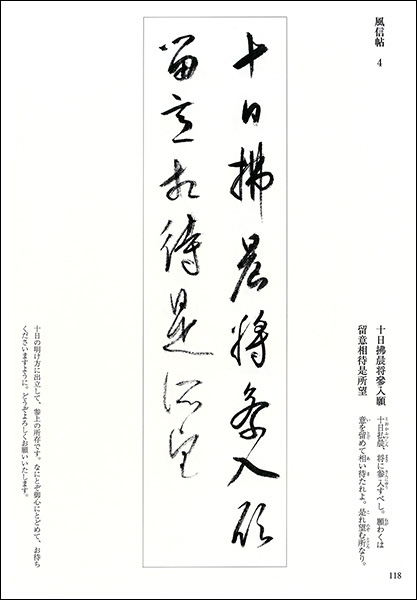 風信帖 4
十日拂晨將參入願
留意相待是所望
十日拂晨将參入願
留意相待是所望
十日払晨、将に參入すべし。願わくは
意を留めて相い待たれよ。是れ望む所なり。
十日の明け方に出立して、参上の所存です。なにとぞ御心にとどめて、お待ち
くださいますように。どうぞよろしくお願いいたします。
118